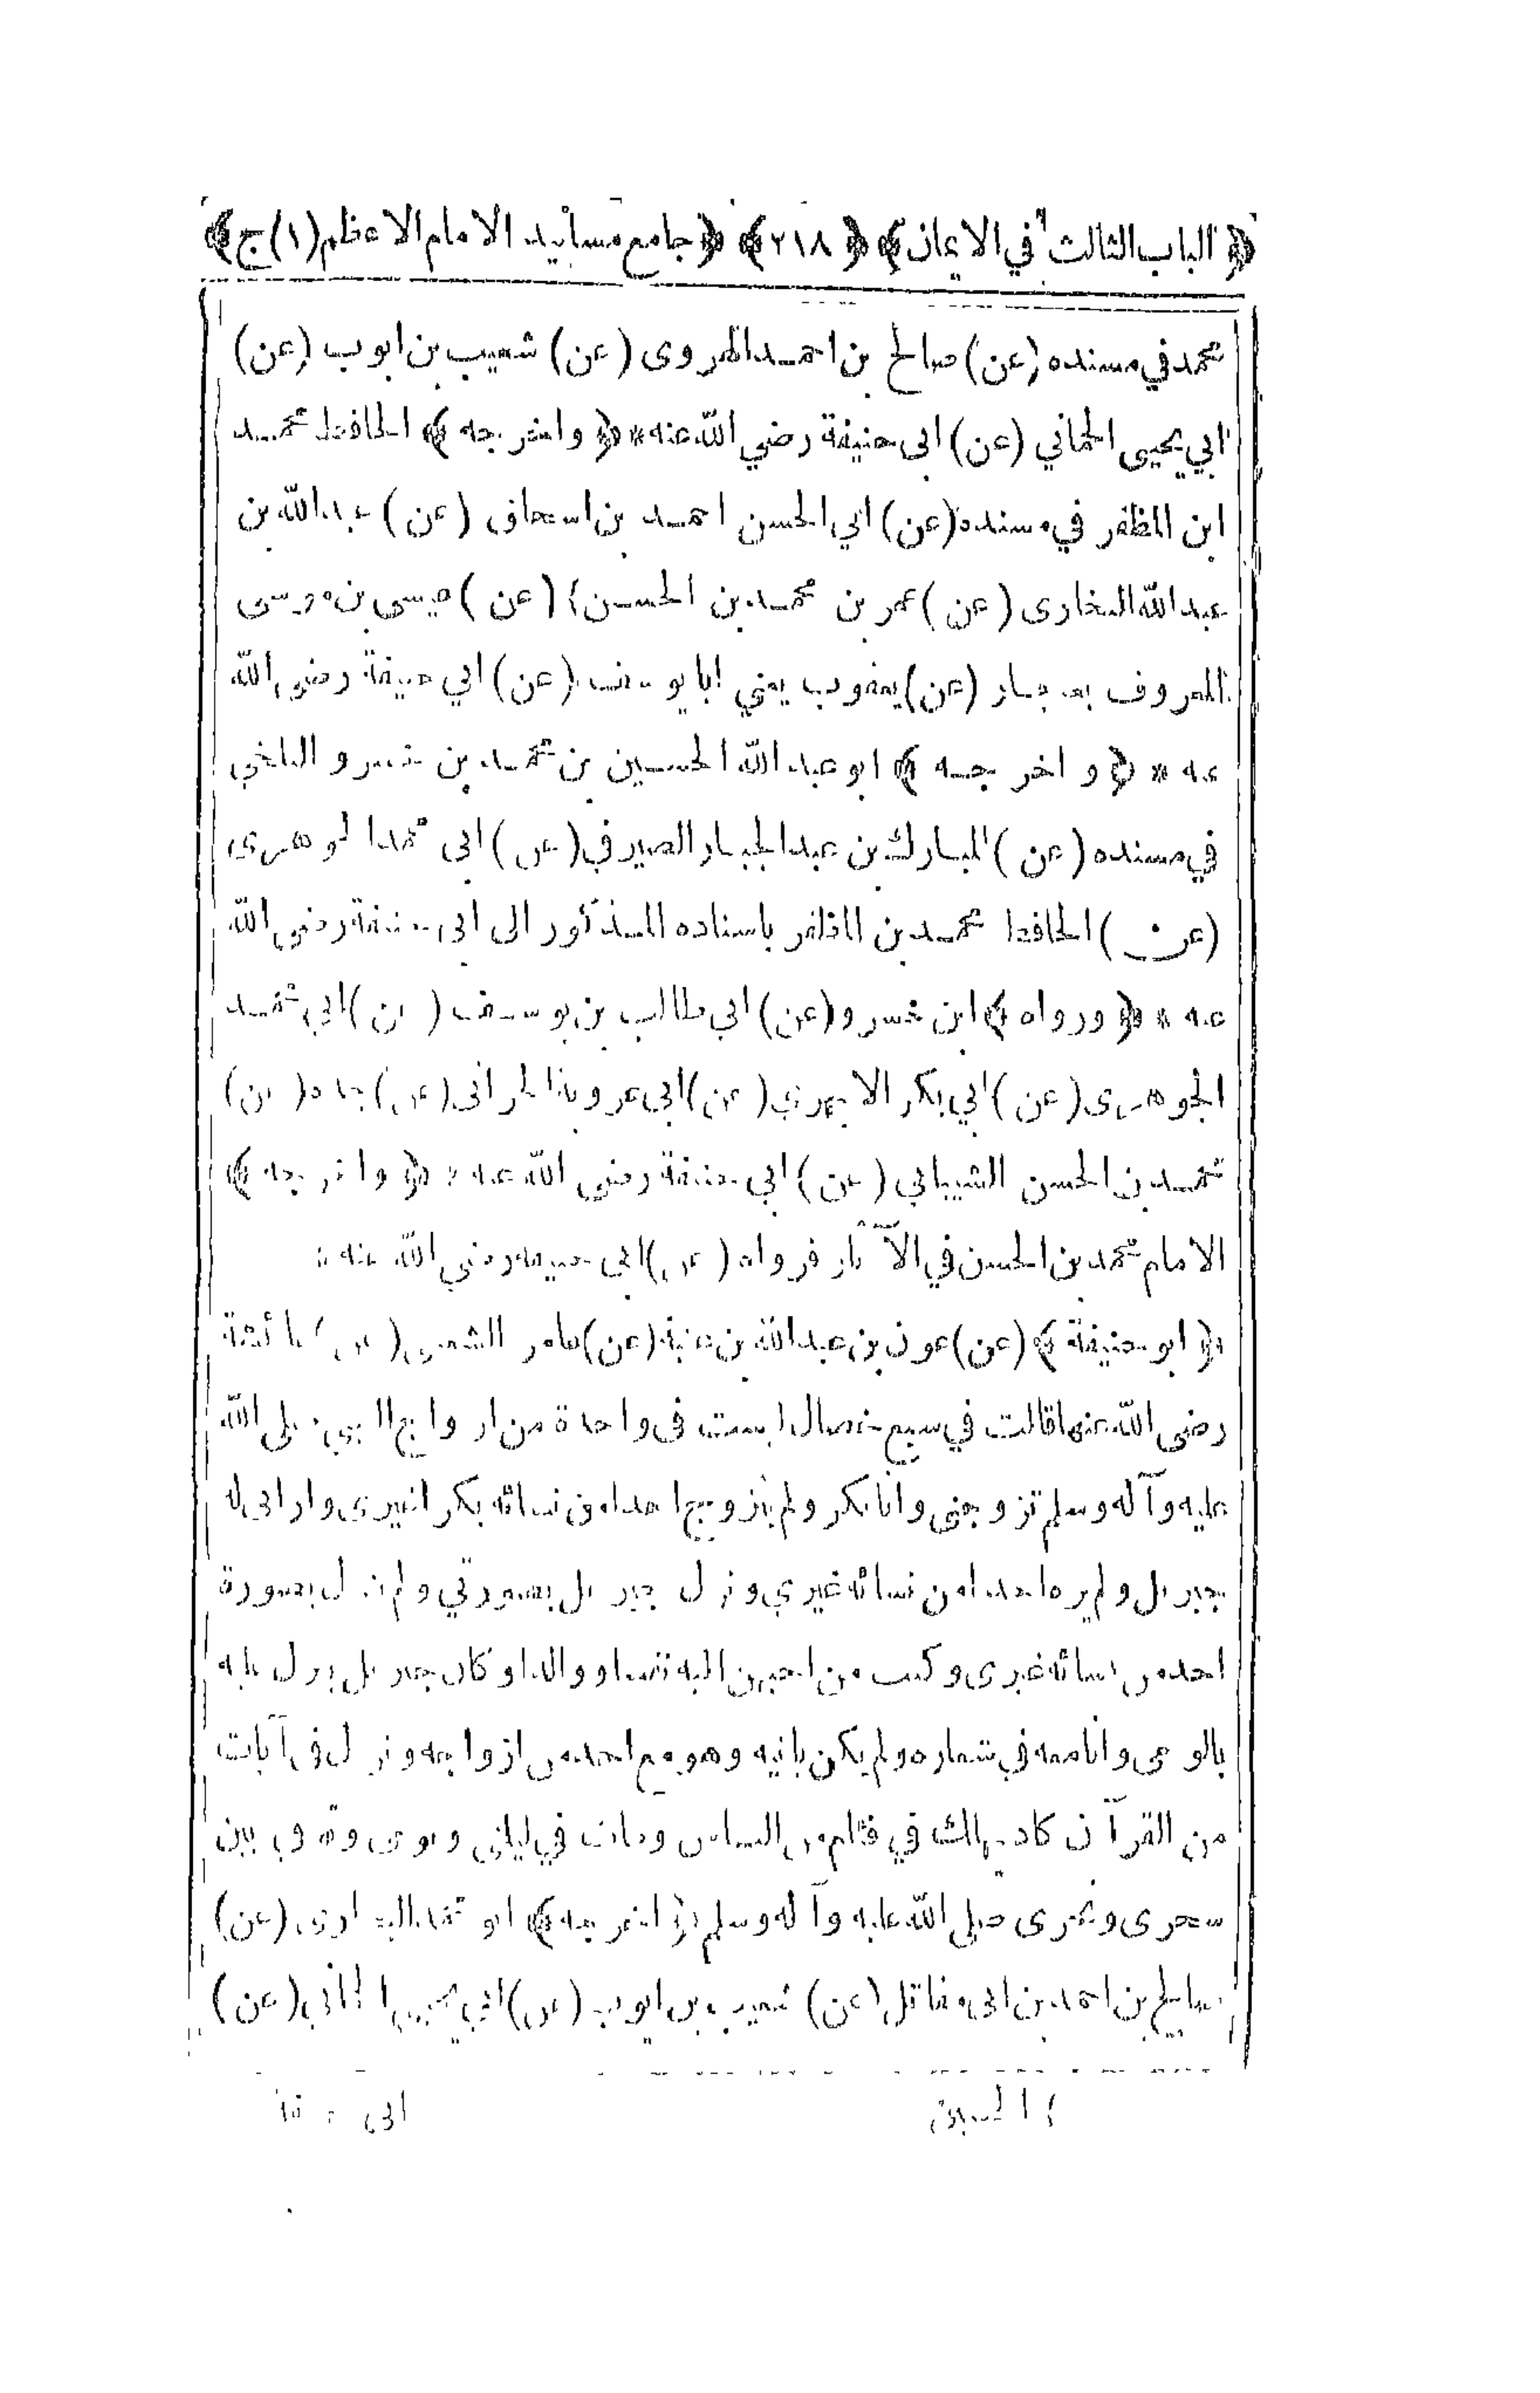 ﴿ الباب الثالث في الايمان ﴾ ﴿ ٢١٨ ﴾ ﴿ جامع مسانيد الامام الاعظم (١) ج ﴾
محمد في مسنده (عن) صالح بن احمد الهروى (عن) شعيب بن ايوب (عن)
ابي يحيى الحماني (عن) ابى حنيفة رضي الله عنه * ﴿ واخرجه ﴾ الحافظ محمد
ابن المظفر في مسنده (عن) ابي الحسن احمد بن اسحاق (عن) عبد الله بن
عبد الله البخارى (عن) عمر بن محمد بن الحسن ١ (عن) عيسى بن موسى
المعروف (عن) يعقوب يعني ابا يوسف (عن) ابي حنيفة رضي الله
عنه * ﴿ واخرجه ﴾ ابو عبد الله الحسين بن محمد بن خسرو البلخي
في مسنده (عن) المبارك بن عبد الجبار الصيرفي (عن) ابى محمد الجوهرى
(عن) الحافظ محمد بن المظفر باسناده المذكور الى ابى حنيفة رضي الله
عنه * ﴿ ورواه ﴾ ابن خسرو (عن) ابي طالب بن يوسف (عن) ابي محمد
الجوهرى (عن) ابي بكر الابهري (عن) ابى عروبة الحرانى (عن) جده (عن)
محمد بن الحسن الشيباني (عن) ابي حنيفة رضي الله عنه * ﴿ واخرجه ﴾
الامام محمد بن الحسن في الآثار فرواه (عن) ابى حنيفه رضي الله عنه *
﴿ ابو حنيفة ﴾ (عن) عون بن عبد الله بن عتبة (عن) عامر الشعبى (عن) عائشة
رضى الله عنها قالت في سبع خصال ليست فى واحدة من ازواج النبي صلى الله
عليه وآله وسلم تزوجنى وانا بكر ولم يتزوج احدا من نسائه بكرا غيرى واراني له
جبريل ولم يره احدا من نسائه غيري ونزل جبريل بصورتي ولم ينزل بصورة
احد من نسائه غيرى وكنت من احبهن اليه نفسا ووالدا وكان جبريل ينزل عليه
بالوحى وانا معه في شعاره ولم يكن يأتيه وهو مع احد من ازواجه ونزل فى آيات
من القرآن كاد يهلك في فئام من الناس ومات في ليلتى ويومى وتوفى بين
سحرى ونحرى صلى الله عليه وآله وسلم ﴿ اخرجه ﴾ ابو محمد البخارى (عن)
صالح بن احمد بن ابى مقاتل (عن) شعيب بن ايوب (عن) ابي يحيى الحمانى (عن)
١ الحسين
ابى حنيفة